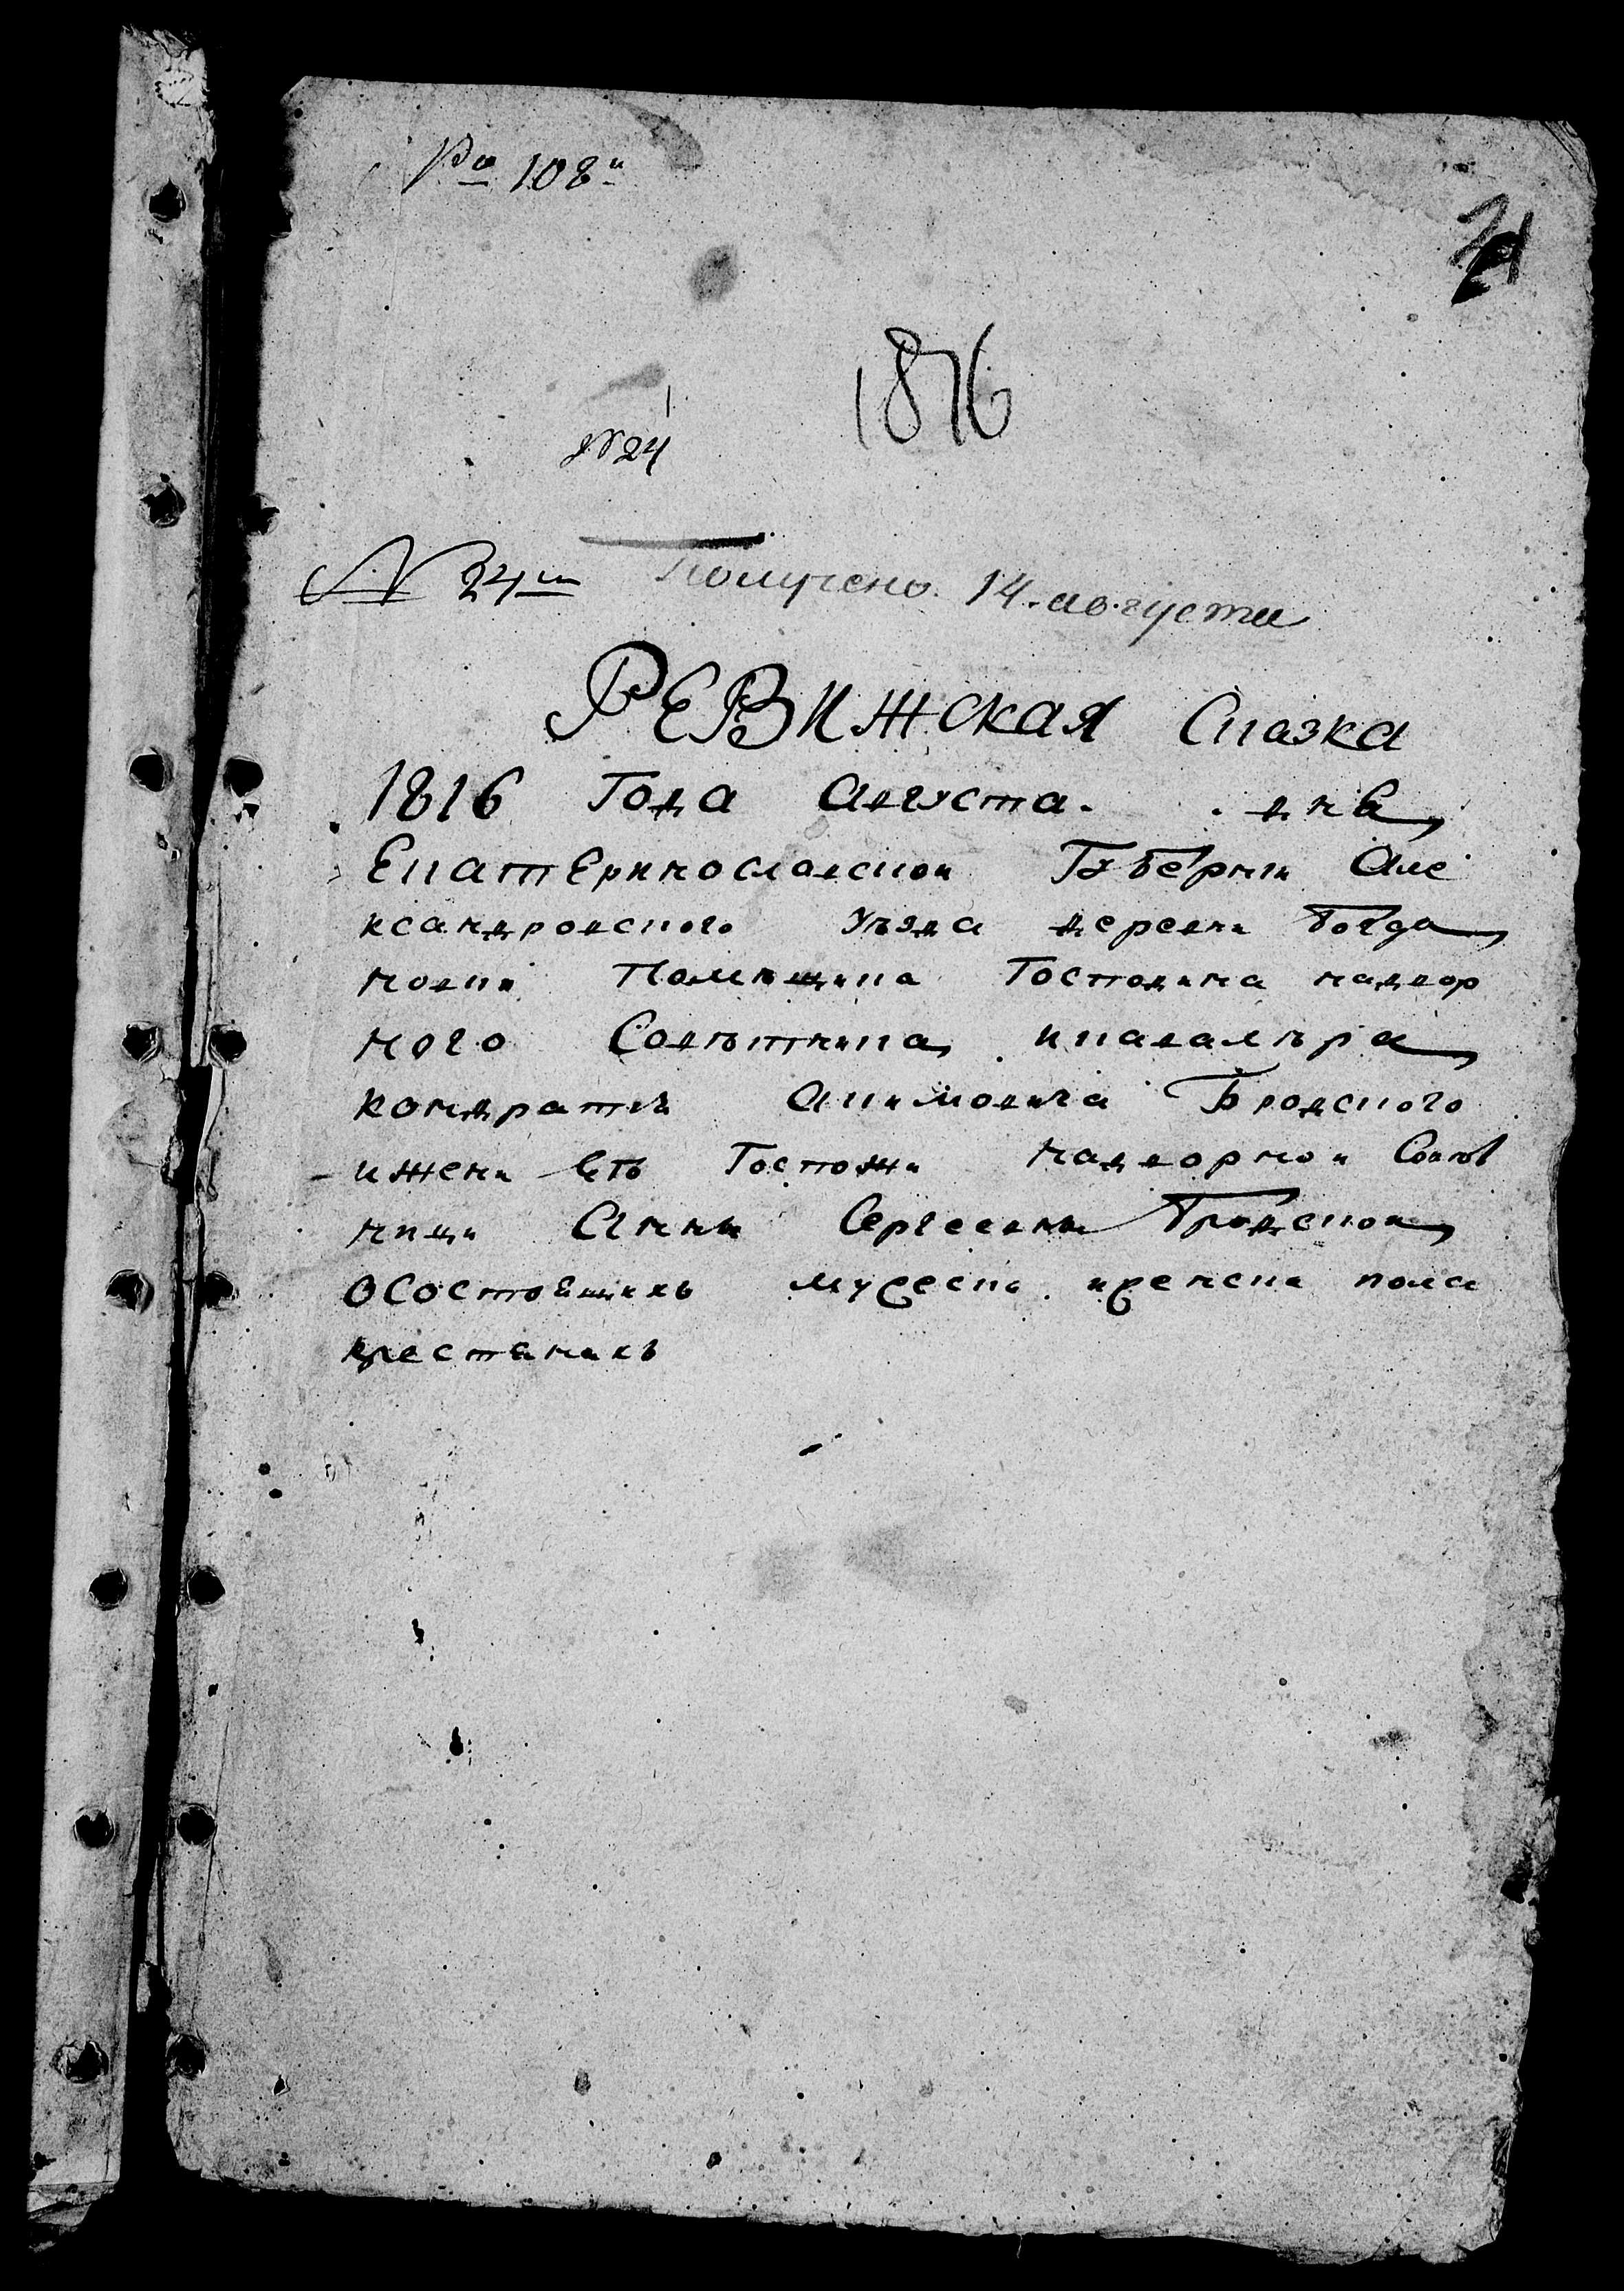 108й
71
1816
№ 24
№ 24й Получено 14. августа
РЕВИЖСКАЯ Сказка
1816 Года Августа дня
Екатеринославской Губернии Але
ксандровского уезда деревни Богда
новки Помещика Господина надвор
ного Советника икавалера
кондратия Акимовича Бродского
ижены его Госпожи надворной Совет
ницы Анны Сергеевны Бродской
осостоящихъ мужеска иженска пола
крестянахъ